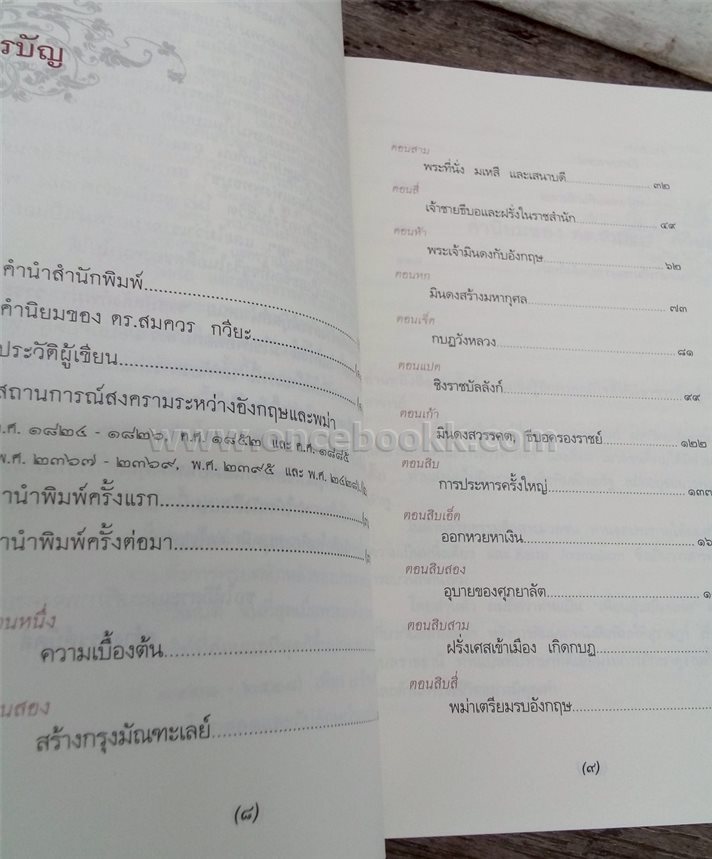 รบัญ
คำนำสำนักพิมพ์
คำนิยมของ ดร.สมควร กวียะ
ประวัติผู้เขียน
สถานการณ์สงครามระหว่างอังกฤษและพม่า
ค.ศ. ๑๘๒๔ - ๑๘๒๖, ค.ศ. ๑๘๕๒ และ ค.ศ. ๑๘๘๕
พ.ศ. ๒๓๖๗ - ๒๓๖๙, พ.ศ. ๒๓๙๕ และ พ.ศ. ๒๔๒๘
นำพิมพ์ครั้งแรก
นำพิมพ์ครั้งต่อมา
อนหนึ่ง
ความเบื้องต้น
นสอง
สร้างกรุงมัณฑะเลย์
(๘)
ตอนสาม
พระที่นั่ง มเหสี และเสนาบดี ๓๒
ตอนสี่
เจ้าชายธีบอและฝรั่งในราชสำนัก ๔๙
ตอนห้า
พระเจ้ามินดงกับอังกฤษ ๖๒
ตอนหก
มินดงสร้างมหากุศล ๗๓
ตอนเจ็ด
กบฏวังหลวง ๘๑
ตอนแปด
ชิงราชบัลลังก์ ๙๙
ตอนเก้า
มินดงสวรรคต, ธีบอครองราชย์ ๑๒๒
ตอนสิบ
การประหารครั้งใหญ่ ๑๓๗
ตอนสิบเอ็ด
ออกหวยหาเงิน ๑๖
ตอนสิบสอง
อุบายของศุภยาลัต ๑
ตอนสิบสาม
ฝรั่งเศสเข้าเมือง เกิดกบฏ
ตอนสิบสี่
พม่าเตรียมรบอังกฤษ
(๙)
www.oncebookk.com